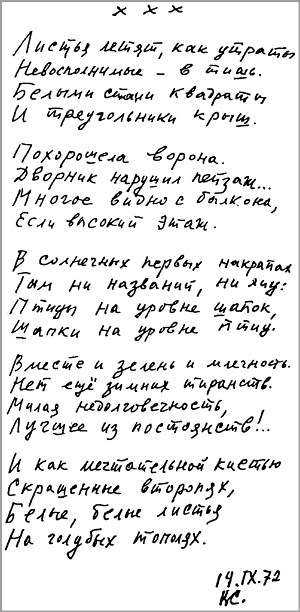 х х х
Листья летят, как утраты
Невосполнимые – в тишь.
Белыми стали квадраты
И треугольники крыш.
Похорошела ворона.
Дворник нарушил пейзаж...
Многое видно с балкона,
Если высокий этаж.
В солнечных первых накрапах
Там ни названий, ни лиц:
Птицы на уровне шапок,
Шапки на уровне птиц.
Вместе и зелень и млечность.
Нет ещё зимних тиранств.
Милая недолговечность,
Лучшее из постоянств!..
И как мечтательной кистью
Скрашенные второпях,
Белые, белые листья
На голубых тополях.
14.IX.72
КС.